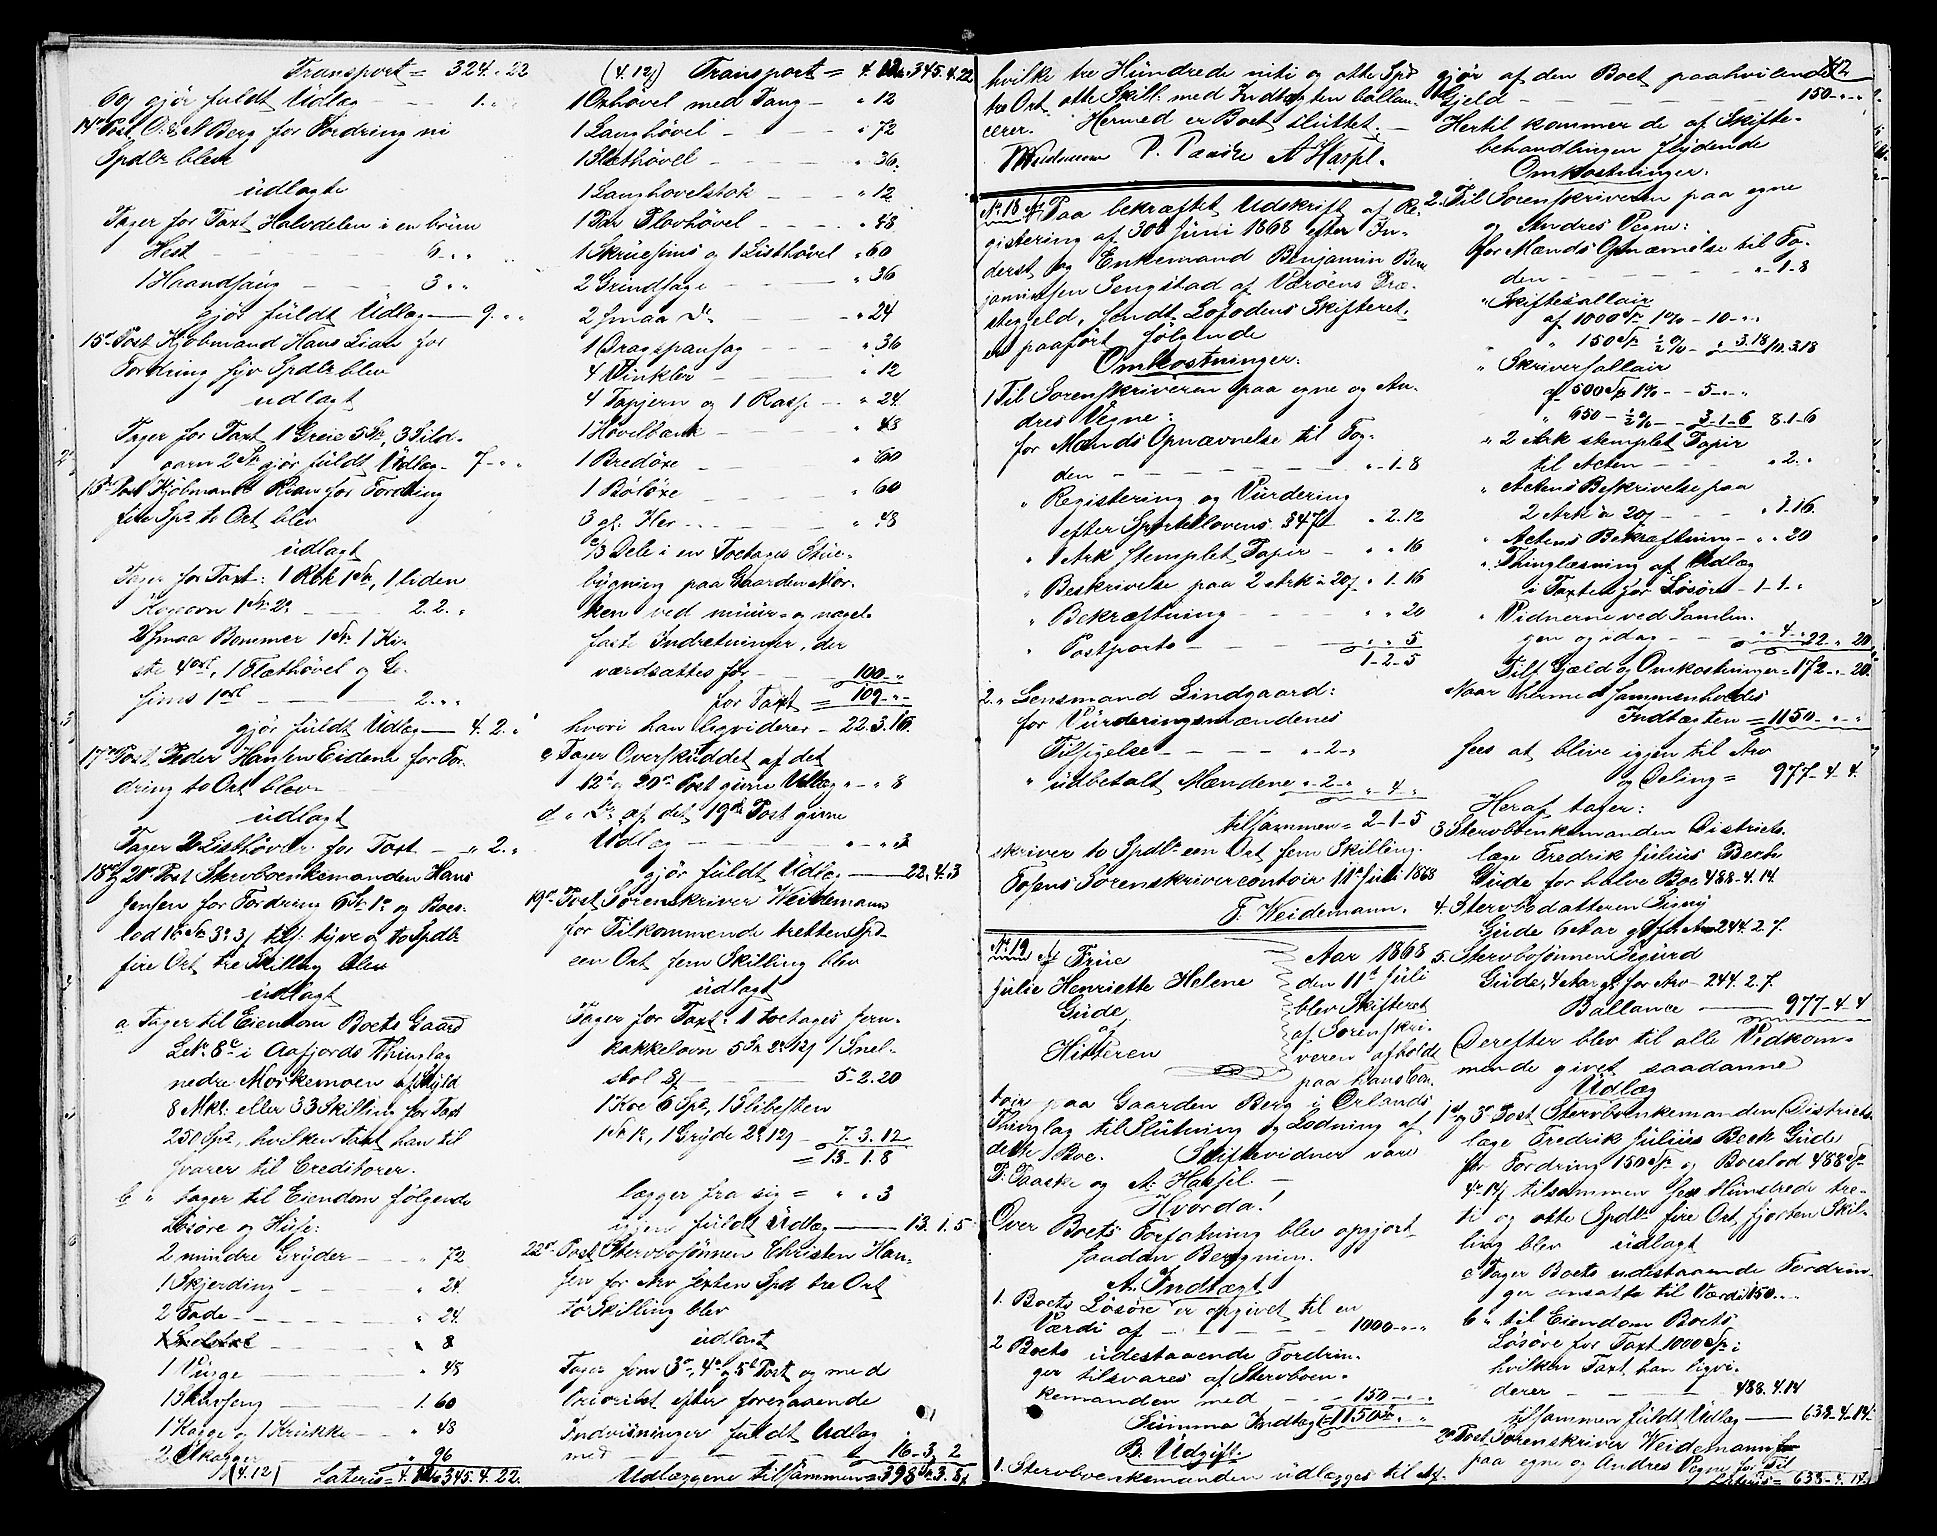 Transport = 324.-22
60/ gjör fuldt Udlag - - 1.,
14de Post O. & S Berg for Fordring ni
Spdlr blev
udlagt
Tager for Taxt Halvdelen i en brun
Hest - - - 6 „ „
1 Haandsaug - - 3 „ „
gjör fuldt Udlæg — 9. „ „
15de Post Kjöbmand Hans Lian for
Fordring syv Spdlr blev
udlagt
Tager for Taxt 1 Greie 5 Sp, 3 Sild-
garn 2 Sp gjör fuldt Udlæg - 7 - „ „
16de Post Kjöbmand Rian for Fordring
fire Spd to Ort blev
udlagt
Tager for Taxt: 1 Kobk 1 Sp, 1 liden
Kogeovn 1 Sp 2 - - 2. 2. „
2 smaa Bommer 1 Sp 1 Ki-
ste 4 ort, 1 Slethövel og Ge-
sims 1 ort - - 2. „ „
gjör fuldt Udlæg — 4. 2. „
17de Post Peder Hansen Eidem for For-
dring to Ort blev
udlagt
Tager 2 Listhövler for Taxt - „ 2. „
18de & 20de Post Stervboenkemanden Hans
Jensen for Fordring 6 Sp 1 og Boes-
lod 16 Sp 3 3/ tils. tyve og to Spdlr
fire Ort tre Skilling blev
udlagt
a Tager til Eiendom Boets Gaard
LNr. 8c i Aafjords Thinglag
nedre Morkemoen af Skyld
8 Mkl. eller 33 Skilling for Taxt
250 Spd, hvilken Taxt han til
svarer til Creditorer.
b „ tager til Eiendom fölgende
Lösöre og Huse:
2 mindre Gryder - - „ 72
1 Skjerding - - „ 24
2 Fade - - „ 24
„ 8
1 Vugge - - „ 48
1 Skuvseng - - 1. 60
1 Kagge og 1 Krukke - „ 48
2 Kagger - „ 96
(4.12) Lateris = 345. 4. 22.
(4.12/) Transport = 345. 4. 22
1 Oxhövel med Tang - „ 12
1 Langhövel - - „ 72
1 Slethövel - - „ 36
1 Langhovelstok - - „ 12
1 Par Plovhövel - - „ 48
1 Skruesims og 1 Listhövel „ 60
2 Grindsage - - „ 36
2 smaa Do - - „ 24
1 Dragspansag - - „ 36
4 Vinkler - - „ 12
4 Tapjern og 1 Rasp - „ 24
1 Hövelbænk - - „ 48
1 Bredöxe - - „ 60
1 Bölöxe - - „ 60
3 gl. Her - - „ 48
2/3 Dele i en Toetages Stue-
bygning paa Gaarden Mor-
ken ved muur- og nagel-
faste Indretninger, der
værdsattes for - 100 - „
for Taxt = 109 - „ -
hvori han liqviderer - 22. 3. 16.
c Tager Overskuddet af det
12te og 20de Post givne Udlæg „ - „ 8
d „ Do af det 19de Post givne
Udlæg - - „ - „ 3
gjör fuldt Udlæg — 22. 4. 3
19de Post Sorenskriver Weidemann
for Tilkommende tretten Spd
een Ort fem Skilling blev
udlagt
Tager for Taxt: 1 toetages Jern-
kakkelovn 5 Sp 2 12/ 1 Snel-
stol 8/ - 5 - 2. 20
1 Koe 6 Spd, 1 Slibesten
1 Sp 1, 1 Gryde 2 12/ - 7. 3. 12
= 13 - 1. 8
lægger fra sig = „ „ 3
igjen fuldt Udlæg — 13. 1. 5
22de Post Stervbosönnen Christen Han-
sen for Arv sexten Spd tre Ort
to Skilling blev
udlagt
Tager fem 3de, 4de og 5te Post og med
Prioritet efter foregaaende
Indviisninger fuldt Udlæg
med - - 16 - 3. 2
Udlæggene tilsammen = 398 Sp 3. 8/
hvilke tre Hundrede niti og otte Spd
tre Ort otte Skill: med Indtægten ballan-
cerer. Hermed er Boet sluttet. -
Weidemann P. Paaske A Harsfl.
No 18 Af Paa bekræftet Udskrift af Re-
gistering af 30te Juni 1868 efter In-
derst og Enkemand Benjamin Ben-
jaminsen Sengstad afVæröens Præ-
stegjeld, sendt Lofodens Skifteret,
er paafört fölgende
Omkostninger:
1 Til Sorenskriveren paa egne og An-
dres Vegne:
for Mænds Opnævnelse til Fog-
den - - - „ - 1 - 8
„ Registering og Vurdering
efter Sportellovens § 47 „ 2. 12
„ 1 Ark stemplet Papir - „ „ 16
„ Beskrivelse paa 2 Ark a 20/ „ 1. 16
„ Bekræftning - - „ „ 20
„ Postporto - - „ „ 5
1 - 2 - 5
2. „ Lensmand Lindgaard:
for Vurderingsmændenes
Tilsigelse - - „ - 2 - „
„ udbetalt Mændene „ - 2 - „ „ 4 „
tilsammen = 2 - 1 - 5
skriver to Spdlr een Ort fem Skilling.
Fosens Sorenskrivercontoir 11te Juli 1868
F. Weidemann.
No 19 Af Frue
Julie Henriette Helene
Gude,
af
Hitteren
Aar 1868
den 11te Juli
blev Skifteret
af Sorenskri-
veren afholdt
paa hans Con-
toir paa Gaarden Berg i Örlands
Thinglag til Slutning og Lodning af
dette Boe. Skiftevidner vare
P. Paaske og A. Harsfl. -
Hvorda!
Over Boets Forfatning blev opgjort
saadan Beregning.
A. Indtægt
1. Boets Lösöre er opgivet til en
Værdi af - - - 1000 - „ - „
2 Boets udestaaende Fordrin-
ger tilsvares af Stervboen-
kemanden med - 150 - „ - „
Summa Indtægt = 1150 Sp „ „
B. Udgift.
1. Stervboenkemanden udlægges til Af-
42
gjör af den Boet paahvilende
Gjeld - - - 150 - „ - „
Hertil kommer de af Skifte-
behandlingen flydende
Omkostninger.
2. Til Sorenskriveren paa egne
og Andres Vegne:
for Mænds Opnævnelse til Fo-
den - - - „ - 1 - 8
„ Skiftesallair
af 1000 Sp 1% - 10 - „ -
„ 150 Sp ½% - „ 3. 18 10. 3. 18
„ Skriversallair
af 500 Sp 1% - - 5 - „ „
„ 650 - ½% - - 3 - 1 - 6 8. 1 - 6
„ 2 Ark stemplet Papir
til Acten - - - „ 2. „
„ Actens Beskrivelse paa
2 Ark a 20/ - - „ 1. 16
„ Actens Bekræftning - „ „ 20
„ Thinglæsning af Udlæg
i Taxten for Lösöre - 1 - 1 - „
„ Vidnerne ved Samlin-
gen og idag - - „ 4 - „ 22 - „ 20
Tils. Gjæld og Omkostninger = 172 - „ 20.
Naar hermed sammenholdes
Indtægten = 1150 - „ - „
sees at blive igjen til Arv
og Deling = 977 - 4 - 4.
Heraf tager:
3 Stervboenkemanden Districts-
læge Fredrik Julius Bech
Gude for halve Boe 488 - 4. 14.
4. Stervbodatteren Signy
Gude 6 Aar gl. for Arv 244. 2. 7.
5. Stervbosönnen Sigurd
Gude, 4 Aar gl. for Arv - 244. 2. 7.
Ballance — 977 - 4. 4
Derefter blev til alle Vedkom-
mende givet saadanne
Udlæg
1ste og 3de Post Stervboenkemanden Districts-
læge Fredrik Julius Bech Gude
for Fordring 150 Sp og Boeslod 488 Sp
4 14/ tilsammen sex Hundrede tre-
ti og otte Spdlr fire Ort fjorten Skil-
ling blev udlagt
a Tager Boets udestaaende Fordrin-
ger ansatte til Værdi 150. „ „
b „ til Eiendom Boets
Lösöre for Taxt 1000 Sp i
hvilken Taxt han liqvi-
derer - - - 488. 4. 14
tilsammen fuldt Udlæg — 638 - 4 - 14.
2de Post Sorenskriver Weidemann
paa egne og Andres Vegne for Til
Lateris = 638 - 4. 14.